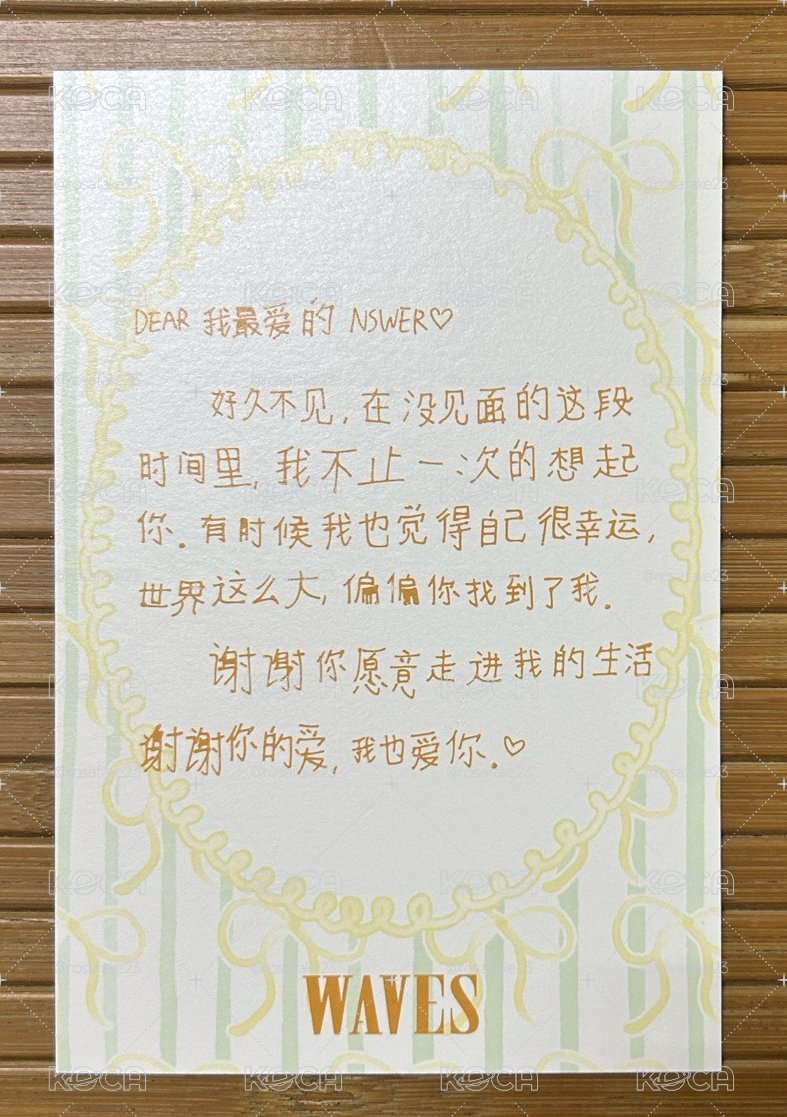 DEAR 我最爱的 NSWER♡
好久不见，在没见面的这段
时间里，我不止一次的想起
你。有时候我也觉得自己很幸运，
世界这么大，偏偏你找到了我。
谢谢你愿意走进我的生活
谢谢你的爱，我也爱你。♡
WAVES
KOCA